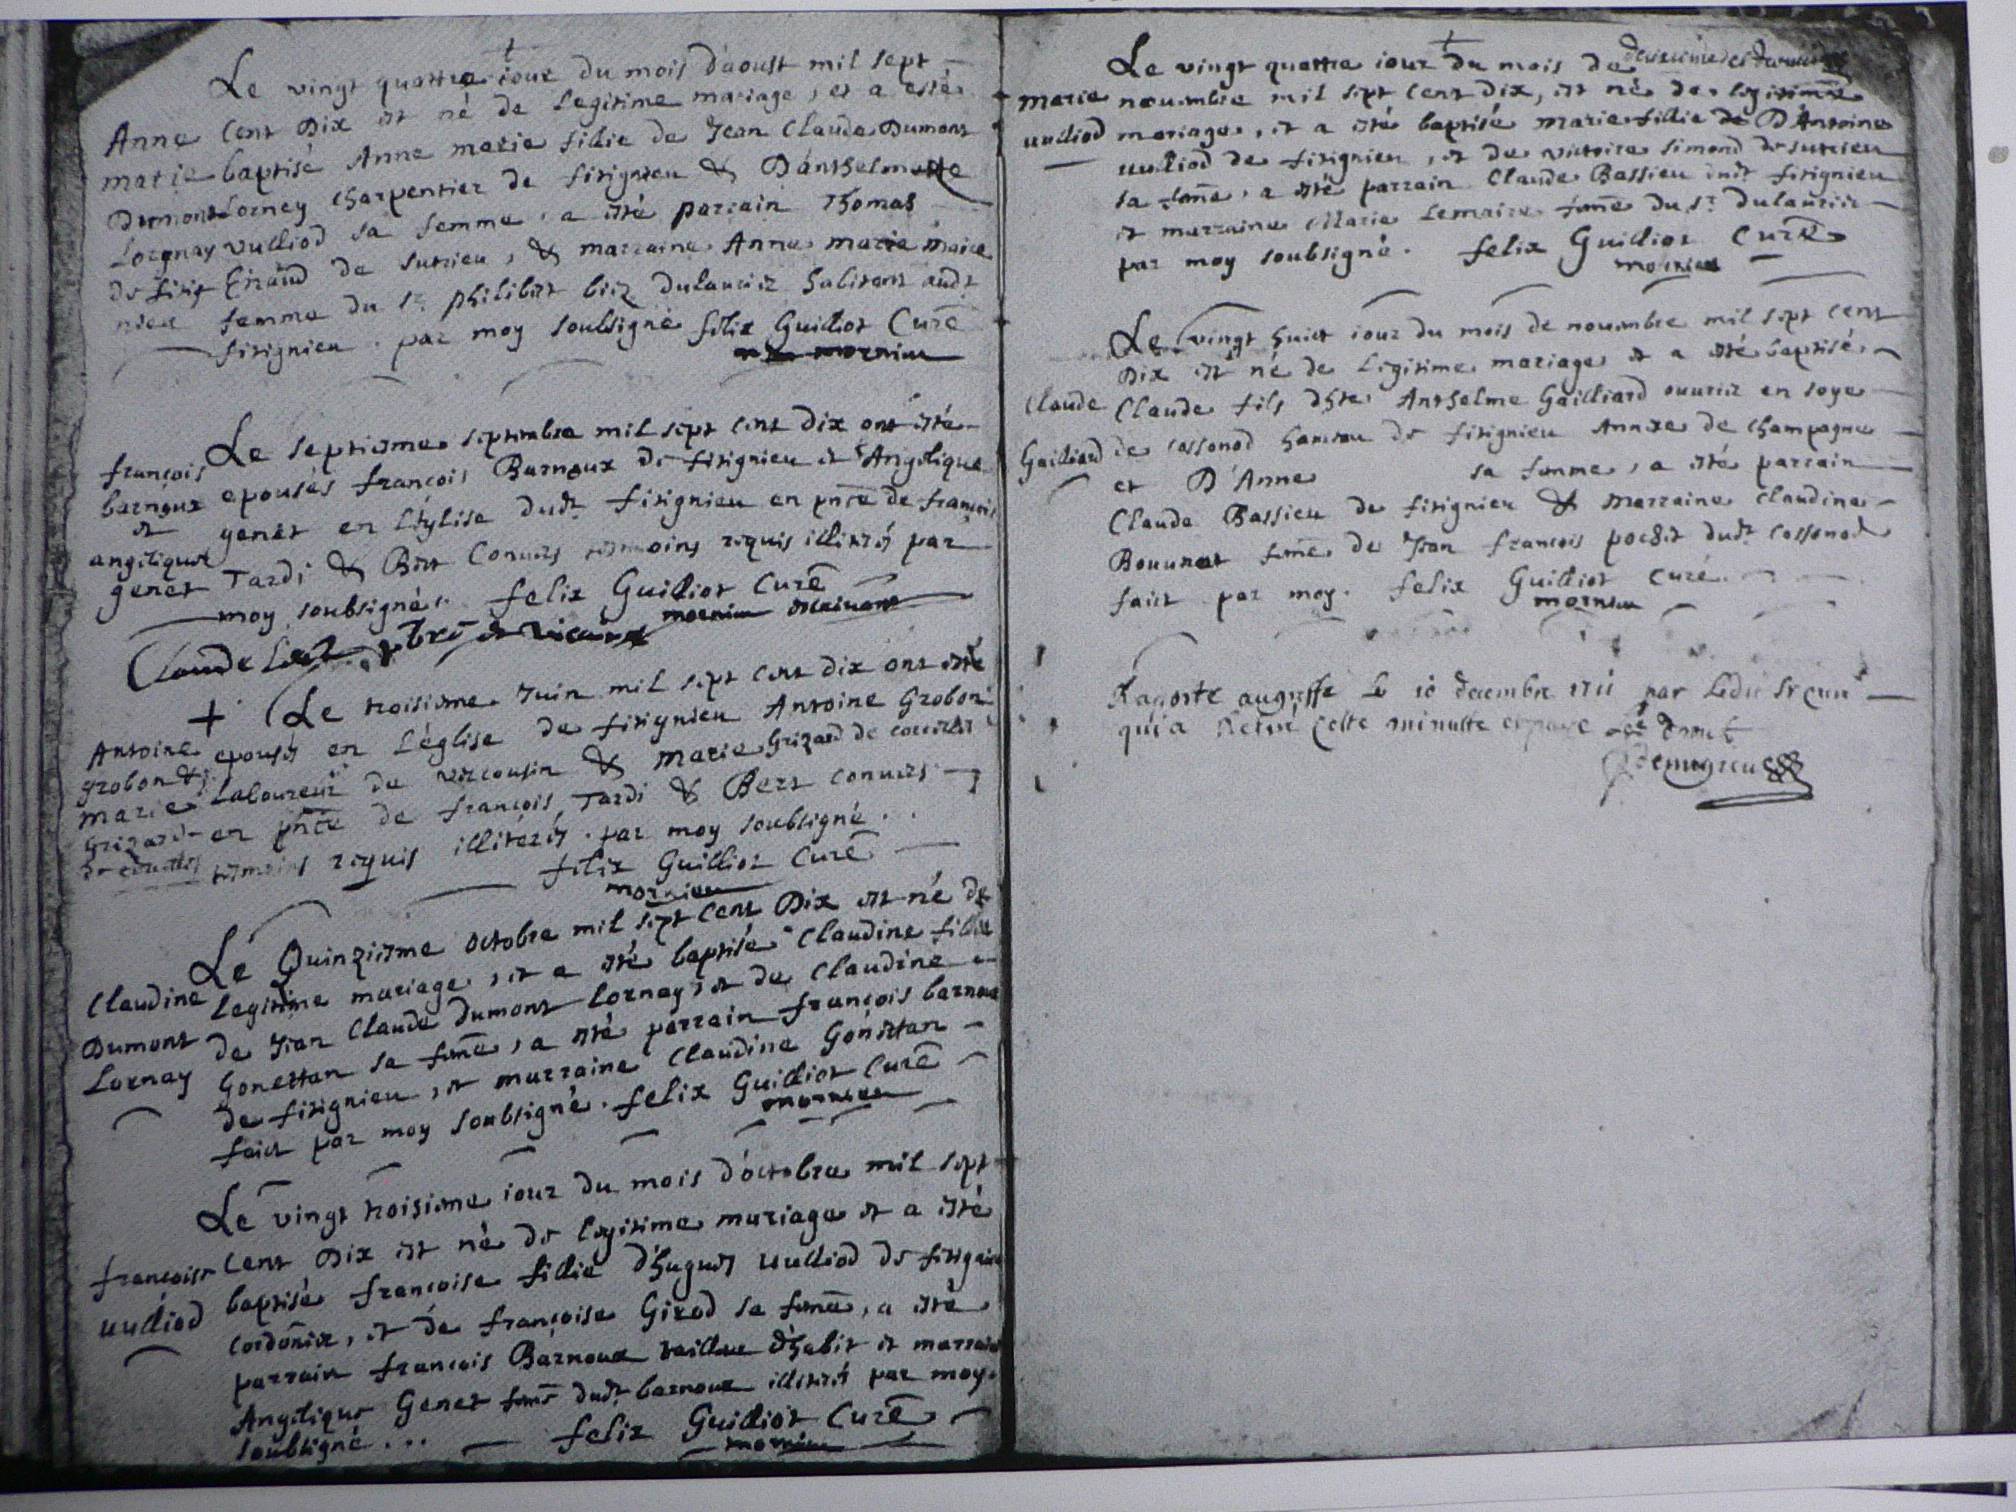 Le vingt quattre iour du mois d'aoust mil sept
Anne Cent Dix est né de Legitime mariage, et a esté
marie baptisé Anne marie fillie de Jean Claude Dumont
Dumont Lornay Charpentier de fitignieu & D'anthelmette
Lorgnay vulliod sa femme, a esté parrain Thomas
de fitig de sutrieu, & marraine Anne marie maire
nieu femme du Sr. philibert Dulaurier habitant audt
fitignieu. par moy soubsigné felix Guilliot Curé
mornieu
Le septiesme septembre mil sept cent Dix ont esté
françois
barnoux epousés françois Barnoux de fitignieu et Angelique
et genet en L'églize dudt fitignieu en pnce de françois
angelique
genet Tardi & Bert Convers tesmoins requis illiterés par
moy soubsigné. felix Guilliot Curé
mornieu
Claude et vicaire
+ Le troisiesme Juin mil sept cent dix ont esté
Antoine epousés en L'églize de fitignieu Antoine Grobon
grobon &
marie Laboureur de & marie Grizard de
Grizard en pnce de françois Tardi & Bert convers
tesmoins requis illiterés. par moy soubsigné..
felix Guilliot Curé
mornieu
Le Quinziesme octobre mil sept Cent Dix est né de
Claudine Legitime mariage, et a esté baptisé Claudine fillie
Dumont de Jean Claude Dumont Lornay, et de Claudine
Lornay Gonettan sa feme, a esté parrain françois barnoux
de fitignieu, et marraine Claudine Gonettan
faict par moy soubsigné. felix Guilliot Curé
mornieu
Le vingt troisiesme iour du mois d'octobre mil sept
françoise Cent Dix est né de legitime mariage et a esté
vulliod baptisé françoise fillie d'huguet vulliod de fitignieu
cordonier, et de françoise Girod sa feme, a esté
parrain françois Barnoux tailleur d'habit et marraine
Angelique Genet feme dudt barnoux illiterés par moy
soubsigné... felix Guilliot Curé
mornieu
Le vingt quattre iour du mois de
marie nouembre mil sept cent dix, est né de legitime
vulliod mariage, et a esté baptisé marie fillie de D'Antoine
vulliod de fitignieu, et de victoire simond de sutrieu
sa feme, a esté parrain Claude Bassieu dudt fitignieu
et marraine Marie Lemaire feme du Sr. Dulaurier
par moy soubsigné. felix Guilliot Curé
mornieu
Le vingt huict iour du mois de nouembre mil sept cent
Dix est né de Legitime mariage et a esté baptisé
Claude Claude fils d'hte Anthelme Gailliard ouurier en soye
Gailliard de cossonod hameau de fitignieu Annixe de Champagne
et D'Anne sa femme, a esté parrain
Claude Bassieu de fitignieu & marraine Claudine
Bouunat feme de Jean françois dudt Cossonod
faict par moy. felix Guilliot Curé
mornieu
Raporté au greffe Le 10 decembre 1711 par Ledit Sr curé
qui a Retiré Cette minutte